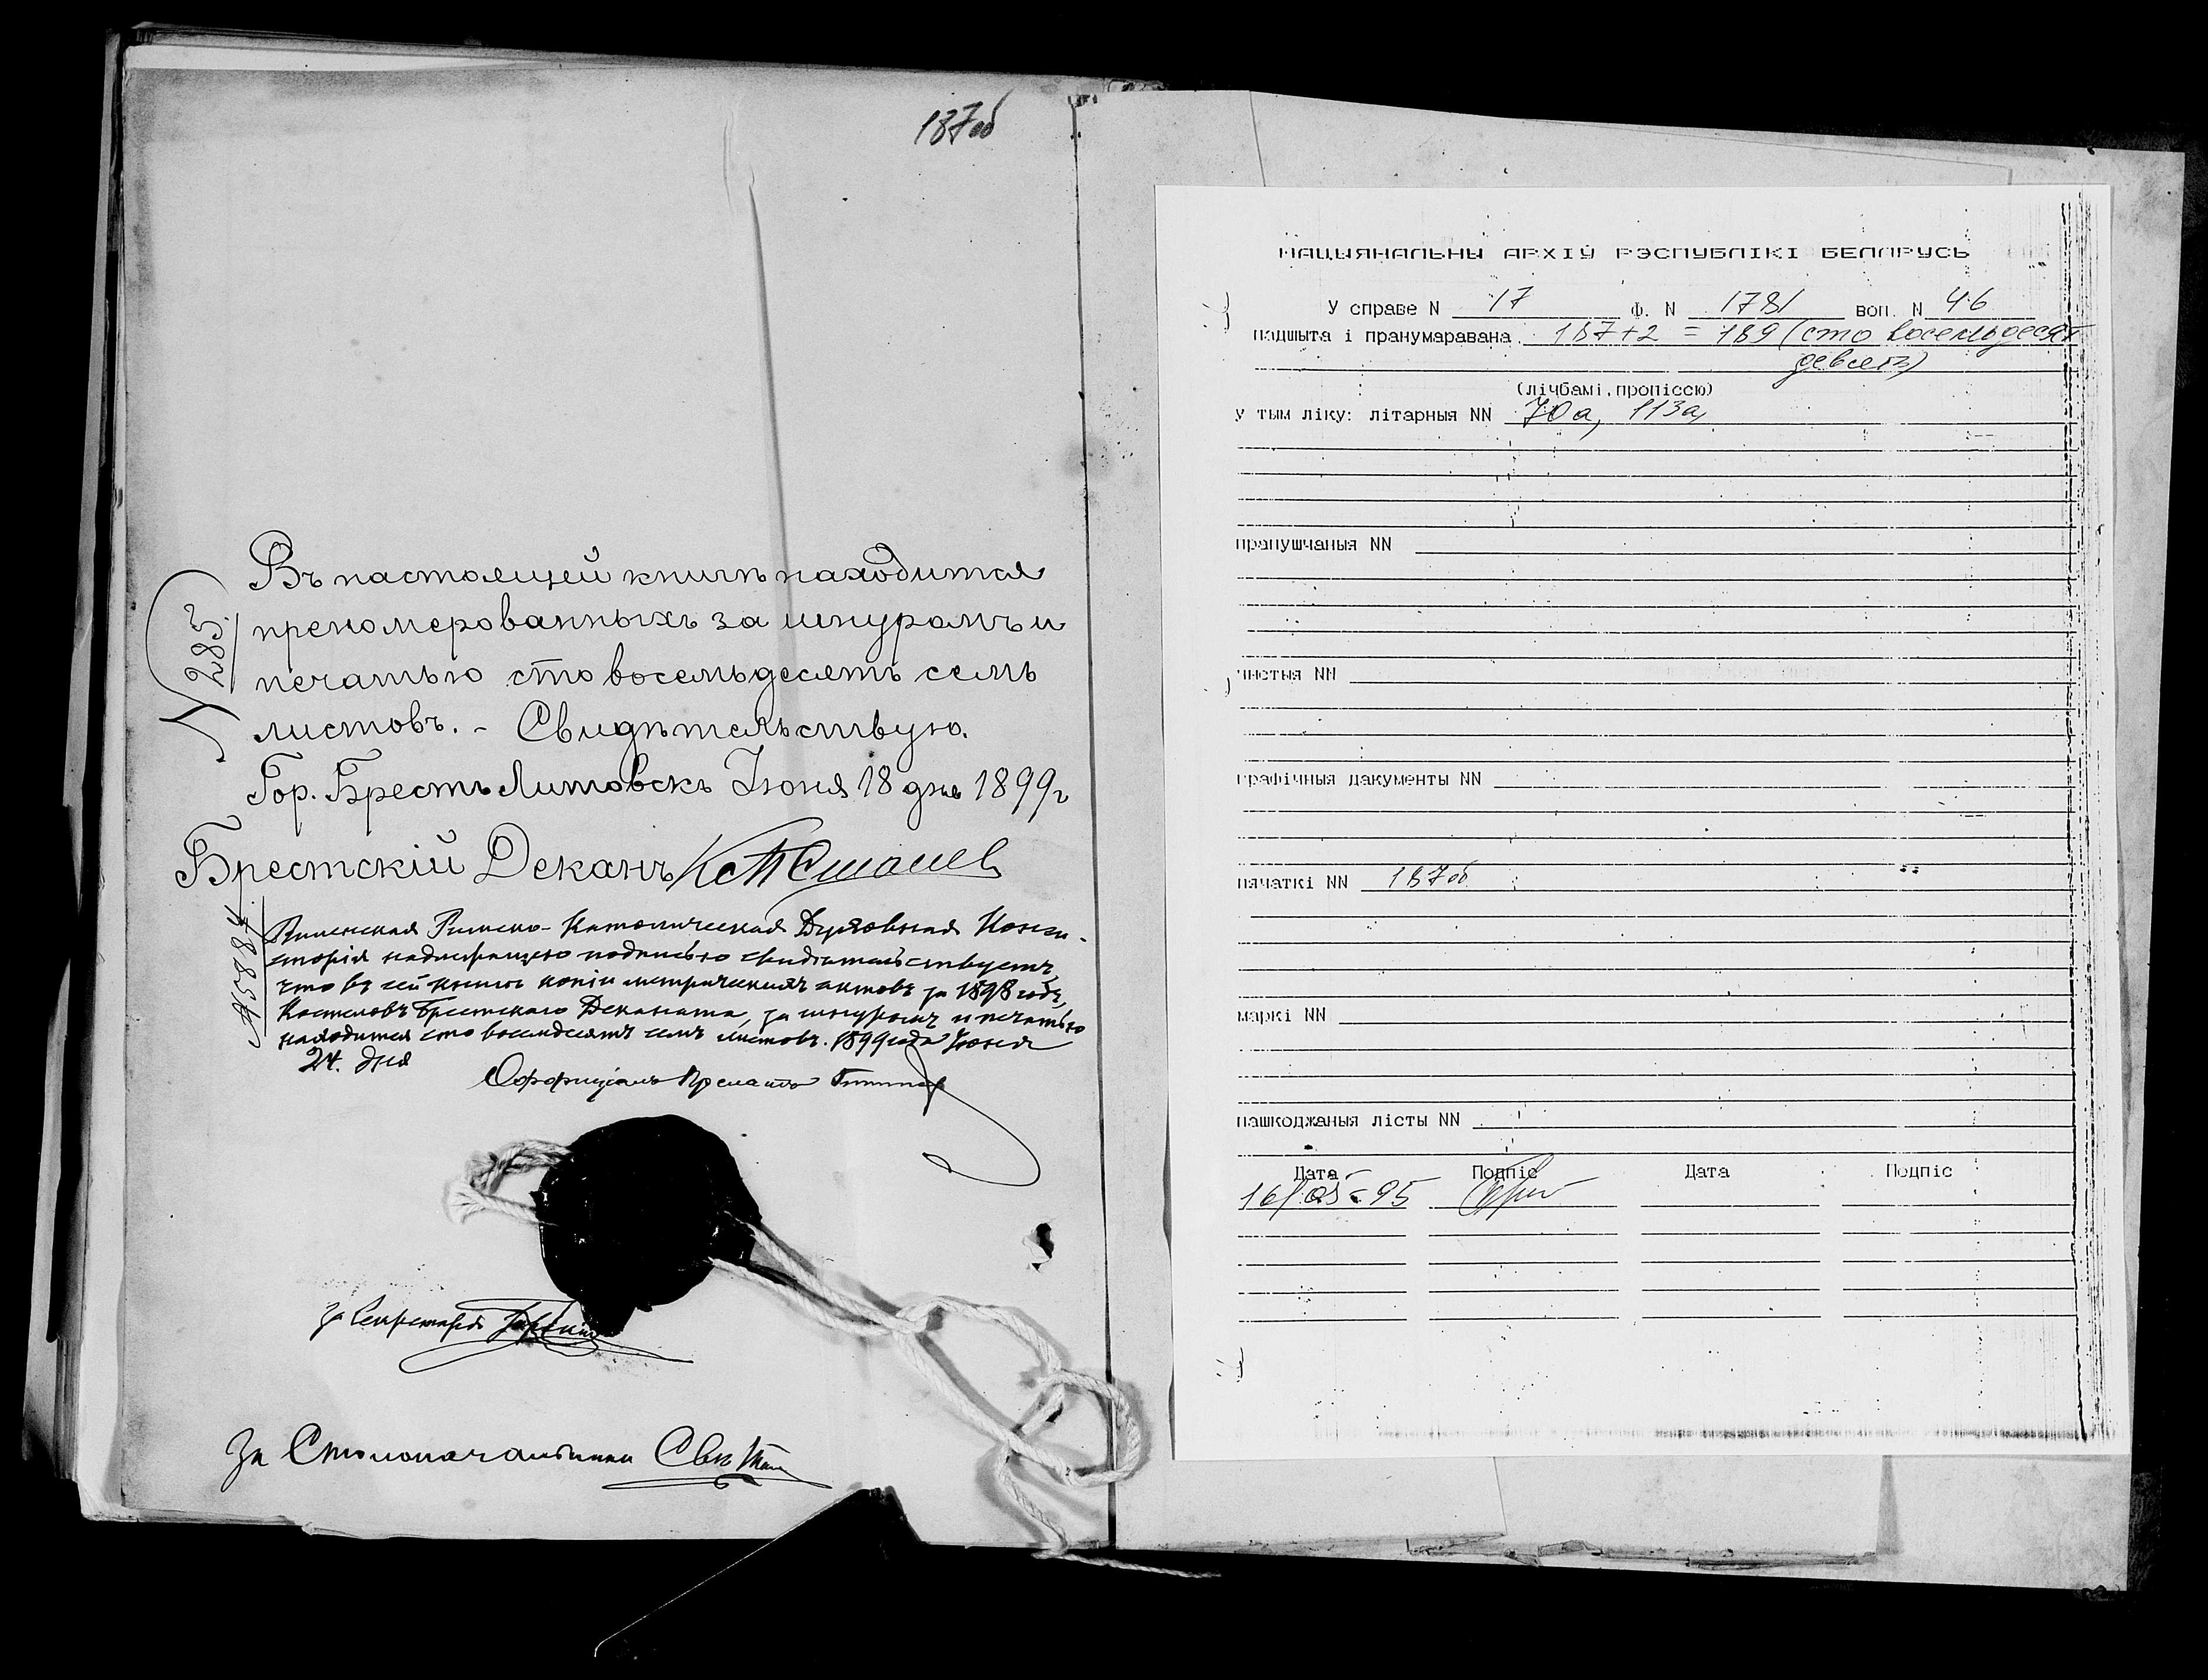 187об
Въ настоящей книгѣ находится
преномерованныхъ за шнуромъ и
печатью сто восемьдесятъ семь
листовъ. - Свидѣтельствую.
Гор. Брестъ Литовскъ Іюня 18 дня 1899 г
N 285.
Брестскій Деканъ
№ 5884
Виленская Римско-Католическая Духовная Конси-
сторія надлежащею подписью свидѣтельствуетъ,
что въ сей книгѣ копіи метрическихъ актовъ за 1898 годъ,
Костеловъ Брестскаго Деканата, за шнуромъ и печатью
находится сто восемдесятъ семь листовъ. 1899 года Іюня
24. дня
Оффиціалъ Прелатъ
За Секретаря
За Столоначальника
НАЦЫЯНАЛЬНЫ АРХІЎ РЭСПУБЛІКІ БЕЛАРУСЬ
У справе N 17 Ф. N 1781 воп. N 46
падшыта і пранумаравана 187+2 = 189 (сто восемьдесят
девять)
(лічбамі, пропіссю)
у тым ліку: літарныя NN 70а, 113а,
прапушчаныя NN
чыстыя NN
графічныя дакументы NN
пячаткі NN 187об
маркі NN
пашкоджаныя лісты NN
Дата Подпіс Дата Подпіс
16/05-95